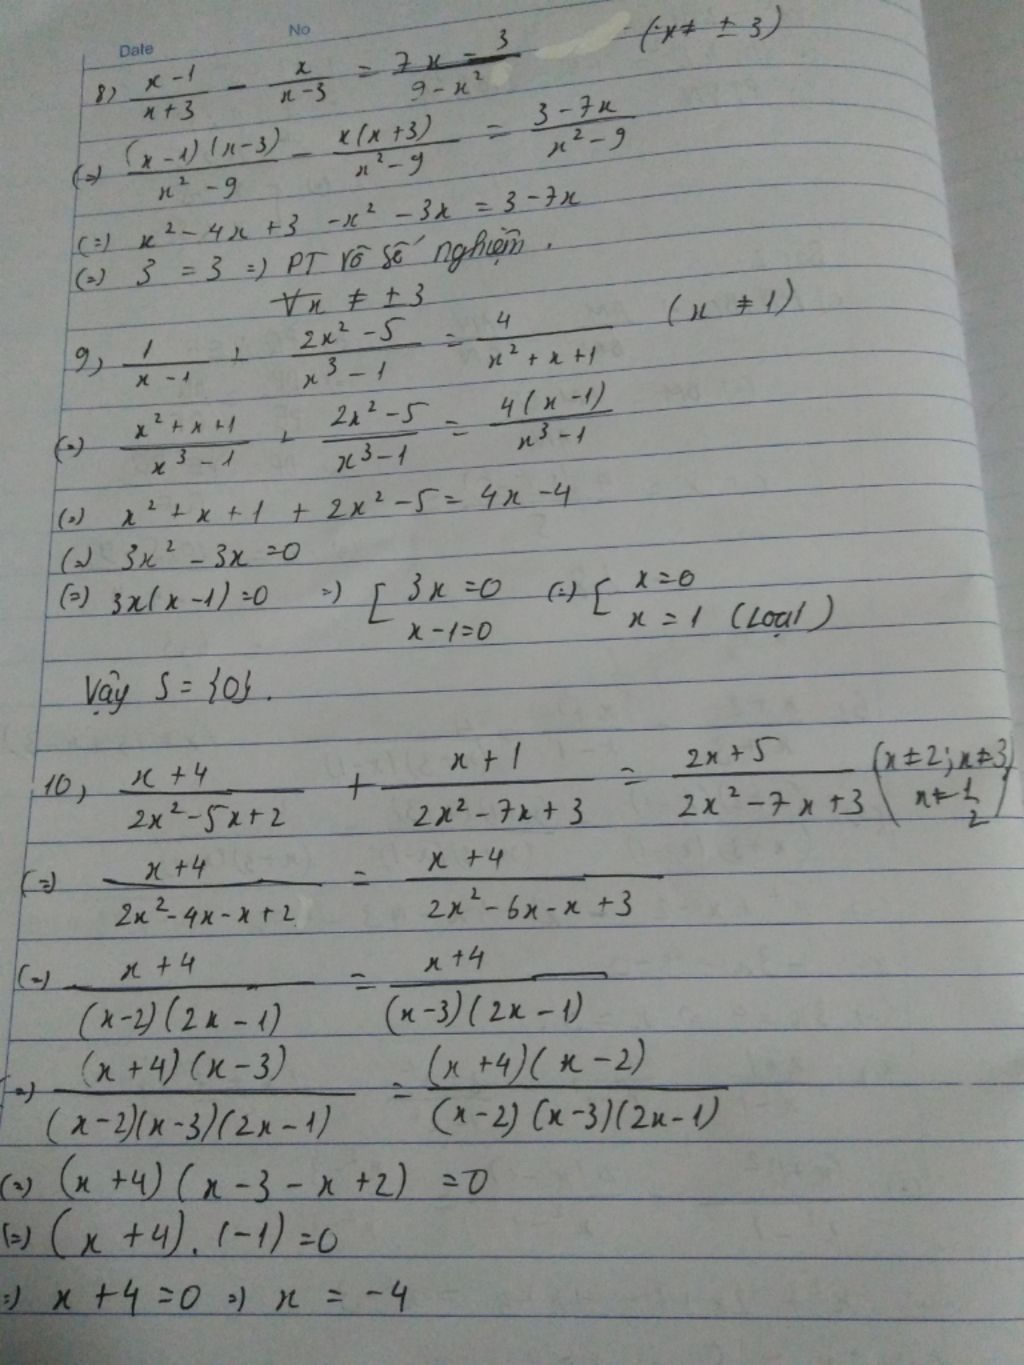 Date No
8) (x-1)/(x+3) - x/(x-3) = (7x-3)/(9-x²) (x ≠ ±3)
(=) ((x-1)(x-3))/(x²-9) - (x(x+3))/(x²-9) = (3-7x)/(x²-9)
(=) x² - 4x + 3 - x² - 3x = 3 - 7x
(=) 3 = 3 => PT vô số nghiệm.
∀x ≠ ±3
9, 1/(x-1) + (2x²-5)/(x³-1) = 4/(x²+x+1) (x ≠ 1)
(=) (x²+x+1)/(x³-1) + (2x²-5)/(x³-1) = (4(x-1))/(x³-1)
(=) x² + x + 1 + 2x² - 5 = 4x - 4
(=) 3x² - 3x = 0
(=) 3x(x-1) = 0 => [ 3x = 0 (=) [ x = 0
x-1=0 x = 1 (Loại)
Vậy S = {0}.
10, (x+4)/(2x²-5x+2) + (x+1)/(2x²-7x+3) = (2x+5)/(2x²-7x+3) (x≠2; x≠3
x≠1/2)
(=) (x+4)/(2x²-4x-x+2) = (x+4)/(2x²-6x-x+3)
(=) (x+4)/((x-2)(2x-1)) = (x+4)/((x-3)(2x-1))
(=) ((x+4)(x-3))/((x-2)(x-3)(2x-1)) = ((x+4)(x-2))/((x-2)(x-3)(2x-1))
(=) (x+4)(x-3-x+2) = 0
(=) (x+4).(-1) = 0
=) x+4 = 0 => x = -4